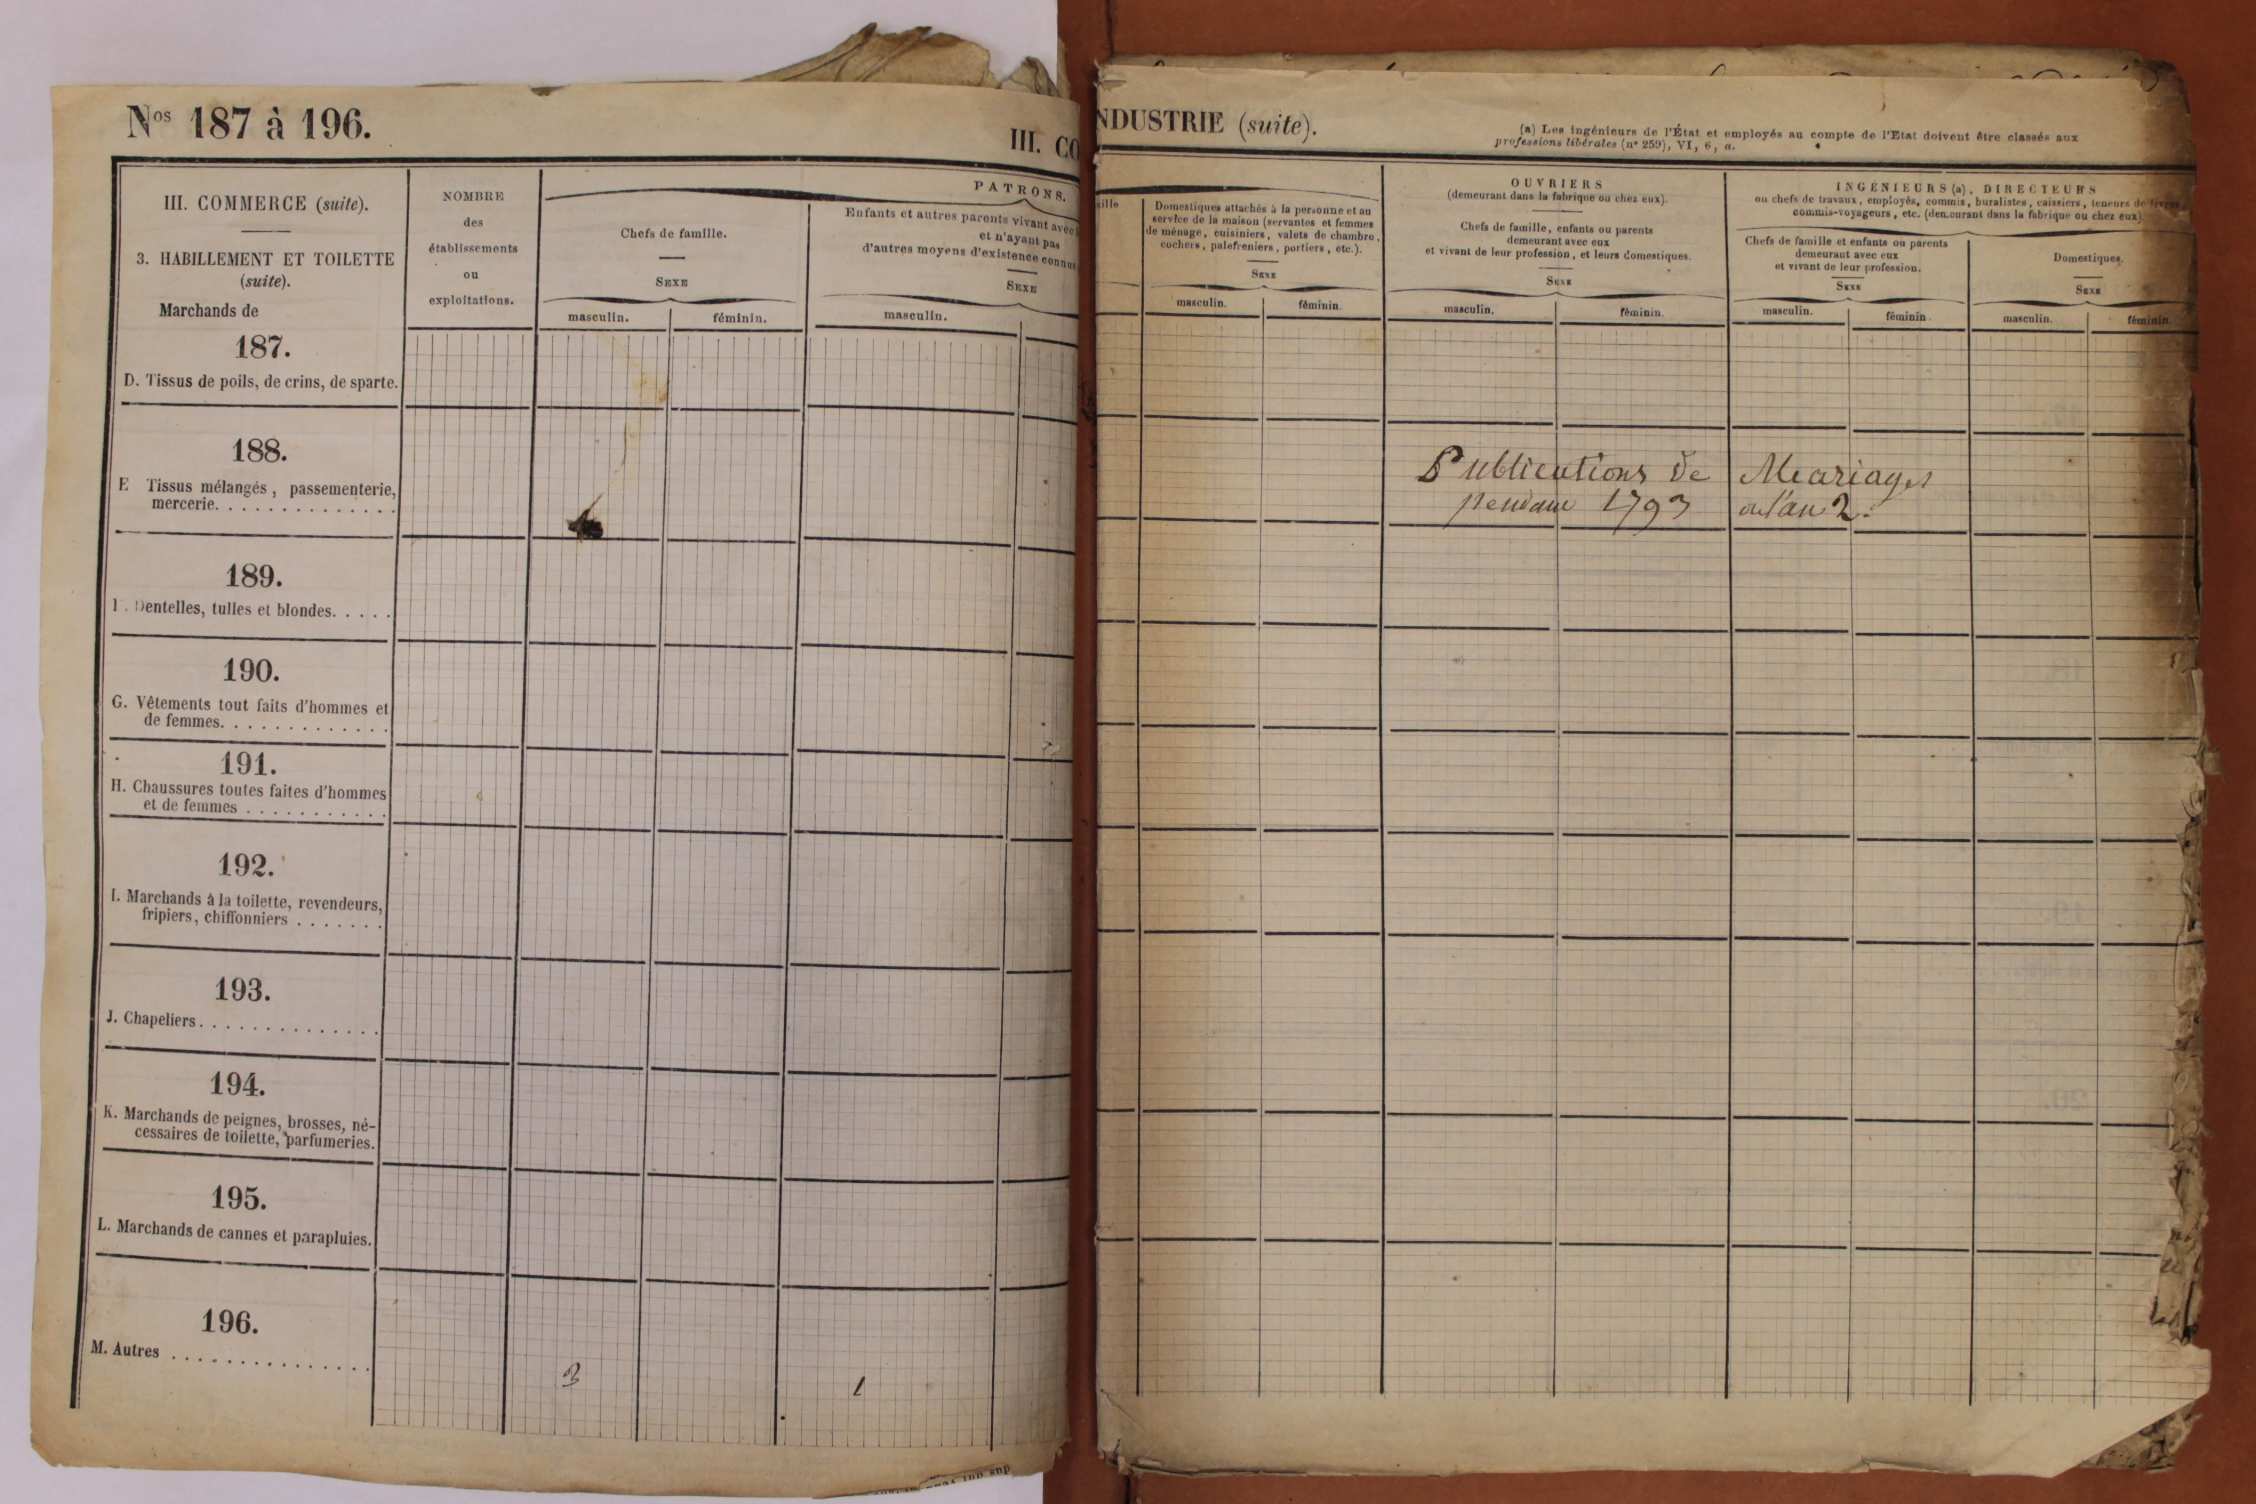 Nos 187 à 196.
III. CO
III. COMMERCE (suite).
3. HABILLEMENT ET TOILETTE
(suite).
Marchands de
NOMBRE
des
établissements
ou
exploitations.
PATRONS.
Chefs de famille.
SEXE
masculin.
féminin.
Enfants et autres parents vivant avec
et n'ayant pas
d'autres moyens d'existence connus
SEXE
masculin.
187.
D. Tissus de poils, de crins, de sparte.
188.
E Tissus mélangés, passementerie,
mercerie. . . . . . . . . . . . . .
189.
. Dentelles, tulles et blondes. . . . .
190.
G. Vêtements tout faits d'hommes et
de femmes. . . . . . . . . . . . .
191.
H. Chaussures toutes faites d'hommes
et de femmes . . . . . . . . . . .
192.
I. Marchands à la toilette, revendeurs,
fripiers, chiffonniers . . . . . . .
193.
J. Chapeliers. . . . . . . . . . . . . .
194.
K. Marchands de peignes, brosses, né-
cessaires de toilette, parfumeries.
195.
L. Marchands de cannes et parapluies.
196.
M. Autres . . . . . . . . . . . . . . .
3
1
NDUSTRIE (suite).
(a) Les ingénieurs de l'État et employés au compte de l'Etat doivent être classés aux
professions libérales (n° 259), VI, 6, a.
ille
Domestiques attachés à la personne et au
service de la maison (servantes et femmes
de ménage, cuisiniers, valets de chambre,
cochers, palefreniers, portiers, etc.).
SEXE
masculin.
féminin.
OUVRIERS
(demeurant dans la fabrique ou chez eux).
Chefs de famille, enfants ou parents
demeurant avec eux
et vivant de leur profession, et leurs domestiques.
SEXE
masculin.
féminin.
INGÉNIEURS (a), DIRECTEURS
ou chefs de travaux, employés, commis, buralistes, caissiers, teneurs de livres,
commis-voyageurs, etc. (demeurant dans la fabrique ou chez eux).
Chefs de famille et enfants ou parents
demeurant avec eux
et vivant de leur profession.
SEXE
masculin.
féminin.
Domestiques.
SEXE
masculin.
féminin.
Publications de Mariages
pendant 1793 ou l'an 2.